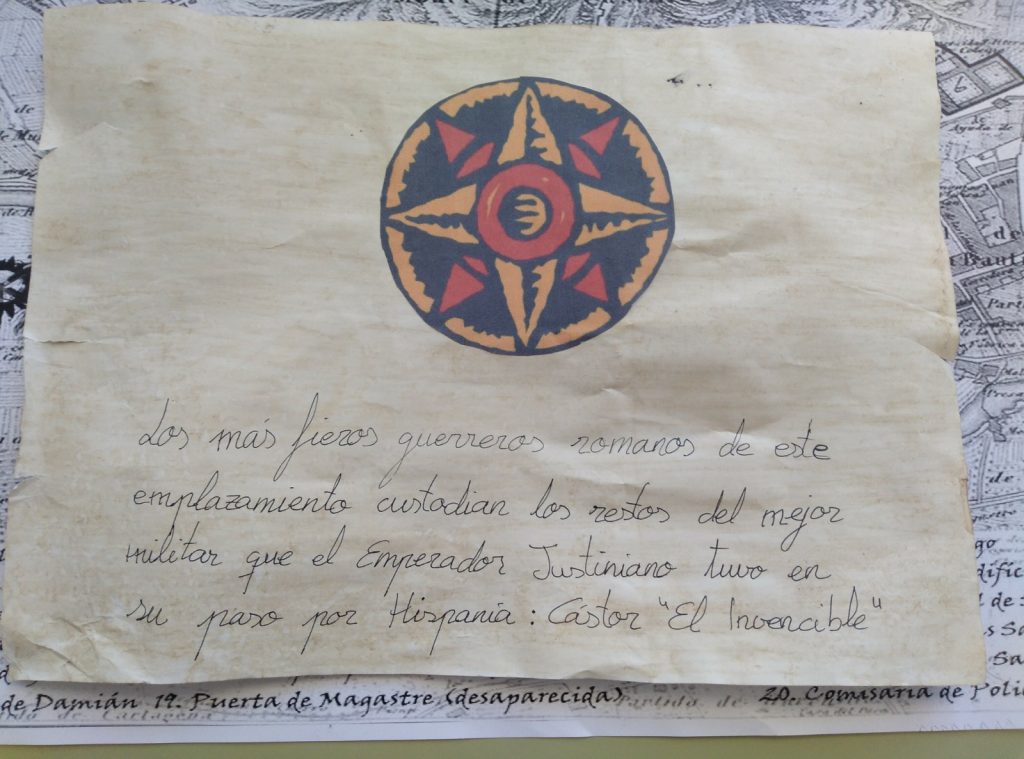 Los más fieros guerreros romanos de este
emplazamiento custodian los restos del mejor
militar que el Emperador Justiniano tuvo en
su paso por Hispania : Cástor "El Invencible"
de Damián 19. Puerta de Magastre (desaparecida) 20. Comisaría de Polic